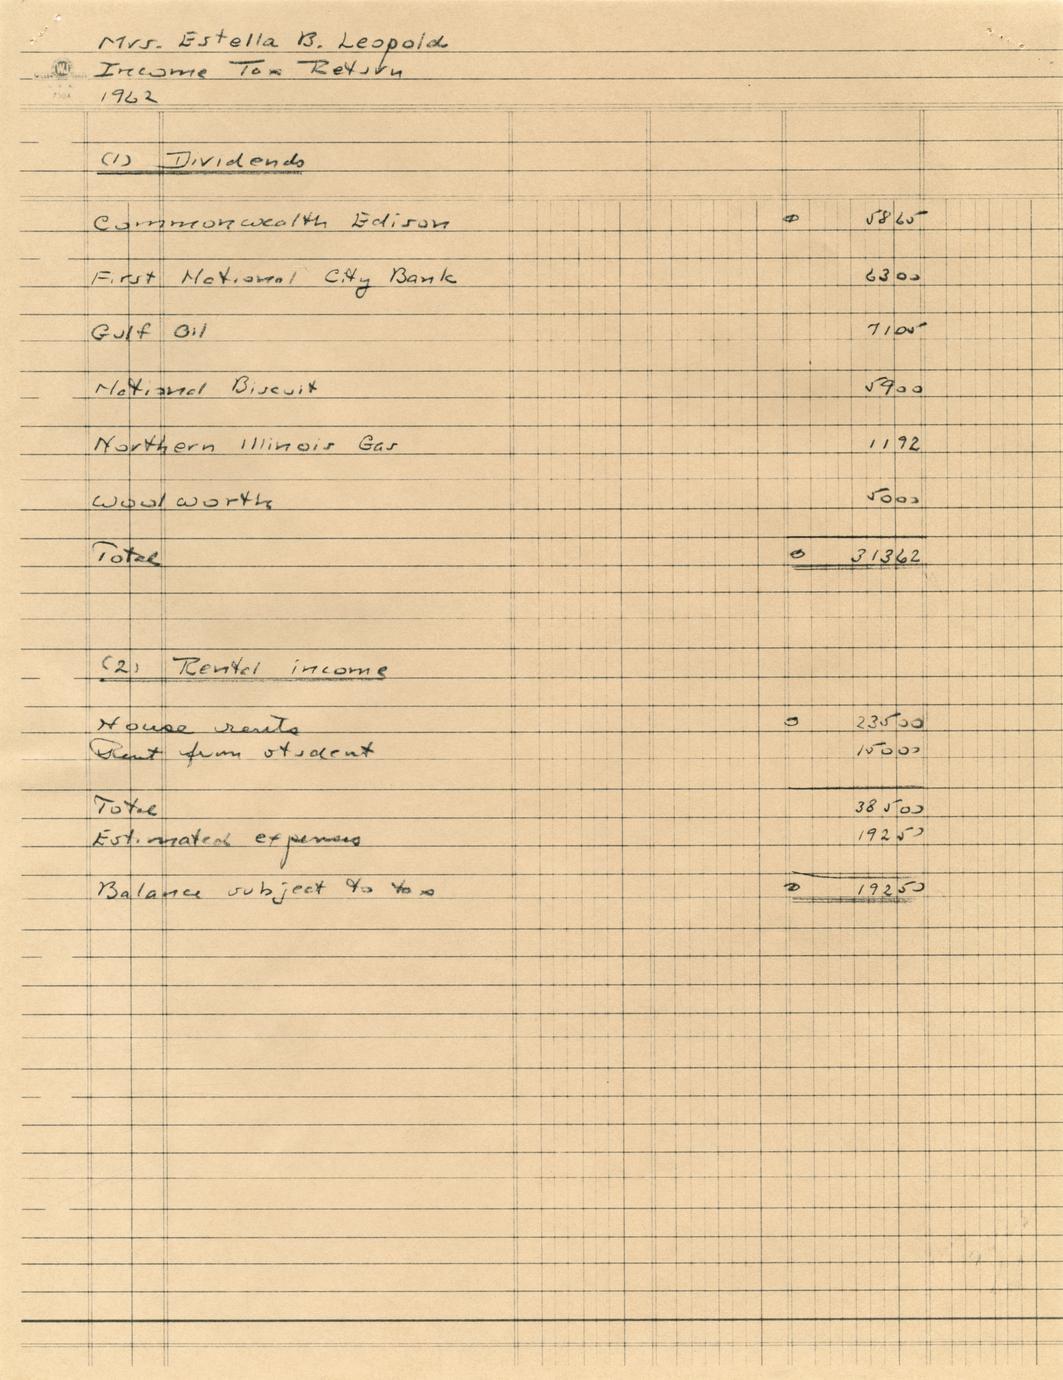 Mrs. Estella B. Leopold
Income Tax Return
1962
(1) Dividends
Commonwealth Edison $ 5865
First National City Bank 6300
Gulf Oil 7105
National Biscuit 5900
Northern Illinois Gas 1192
Woolworth 5000
Total $ 31362
(2) Rental income
House rents $ 23500
Rent from student 15000
Total 38500
Estimated expenses 19250
Balance subject to tax $ 19250